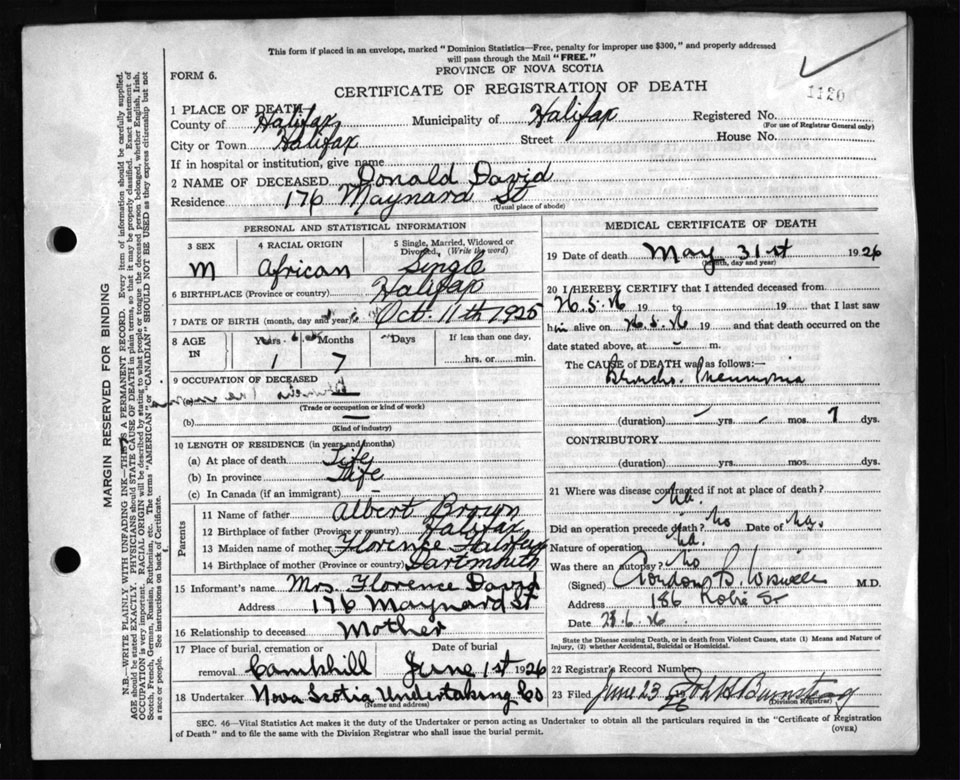 This form if placed in an envelope, marked "Dominion Statistics—Free, penalty for improper use $300," and properly addressed
will pass through the Mail "FREE."
PROVINCE OF NOVA SCOTIA
FORM 6.
CERTIFICATE OF REGISTRATION OF DEATH
1120
1 PLACE OF DEATH
County of Halifax Municipality of Halifax Registered No.
(For use of Registrar General only)
City or Town Halifax Street House No.
If in hospital or institution, give name
2 NAME OF DECEASED Donald David
Residence 176 Maynard St
(Usual place of abode)
PERSONAL AND STATISTICAL INFORMATION
3 SEX 4 RACIAL ORIGIN 5 Single, Married, Widowed or
Divorced, (Write the word)
M African Single
6 BIRTHPLACE (Province or country) Halifax
7 DATE OF BIRTH (month, day and year) Oct. 11th 1925
8 AGE IN Years Months Days If less than one day,
1 7 hrs. or min.
9 OCCUPATION OF DECEASED
(a)
(Trade or occupation or kind of work)
(b)
(Kind of industry)
10 LENGTH OF RESIDENCE (in years and months)
(a) At place of death Life
(b) In province Life
(c) In Canada (if an immigrant) —
Parents
11 Name of father Albert Brown
12 Birthplace of father (Province or country) Halifax
13 Maiden name of mother Florence Halifax
14 Birthplace of mother (Province or country) Dartmouth
15 Informant's name Mrs. Florence David
Address 176 Maynard St
16 Relationship to deceased Mother
17 Place of burial, cremation or Date of burial
removal Camphill June 1st 1926
18 Undertaker Nova Scotia Undertaking Co
(Name and address)
MEDICAL CERTIFICATE OF DEATH
19 Date of death May 31st 1926
(Month, day and year)
20 I HEREBY CERTIFY that I attended deceased from
19 to 19 that I last saw
him alive on 19 and that death occurred on
date stated above, at — m.
The CAUSE of DEATH was as follows:—
Broncho. Pneumonia
(duration) yrs. mos. 7 dys.
CONTRIBUTORY
(duration) yrs. mos. dys.
21 Where was disease contracted if not at place of death?
Did an operation precede death? No Date of
Nature of operation
Was there an autopsy? No
(Signed) Gordon B. Wiswell M.D.
Address 186 Robie St
Date 23.6.26
State the Disease causing Death, or in death from Violent Causes, state (1) Means and Nature of
Injury, (2) whether Accidental, Suicidal or Homicidal.
22 Registrar's Record Number
23 Filed June 23 1926
(Division Registrar)
SEC. 46—Vital Statistics Act makes it the duty of the Undertaker or person acting as Undertaker to obtain all the particulars required in the "Certificate of Registration
of Death" and to file the same with the Division Registrar who shall issue the burial permit.
(OVER)
MARGIN RESERVED FOR BINDING
N.B.—WRITE PLAINLY WITH UNFADING INK—THIS IS A PERMANENT RECORD. Every item of information should be carefully supplied.
AGE should be stated EXACTLY. PHYSICIANS should STATE CAUSE OF DEATH in plain terms, so that it may be properly classified. Exact statement of
OCCUPATION is very important. RACIAL ORIGIN will be described by stating to what people or tongue the deceased person belonged, whether English, Irish,
Scotch, French, German, Russian, Ruthenian, etc. The terms "AMERICAN" or "CANADIAN" SHOULD NOT BE USED as they express citizenship but not
a race or people. See instructions on back of Certificate.